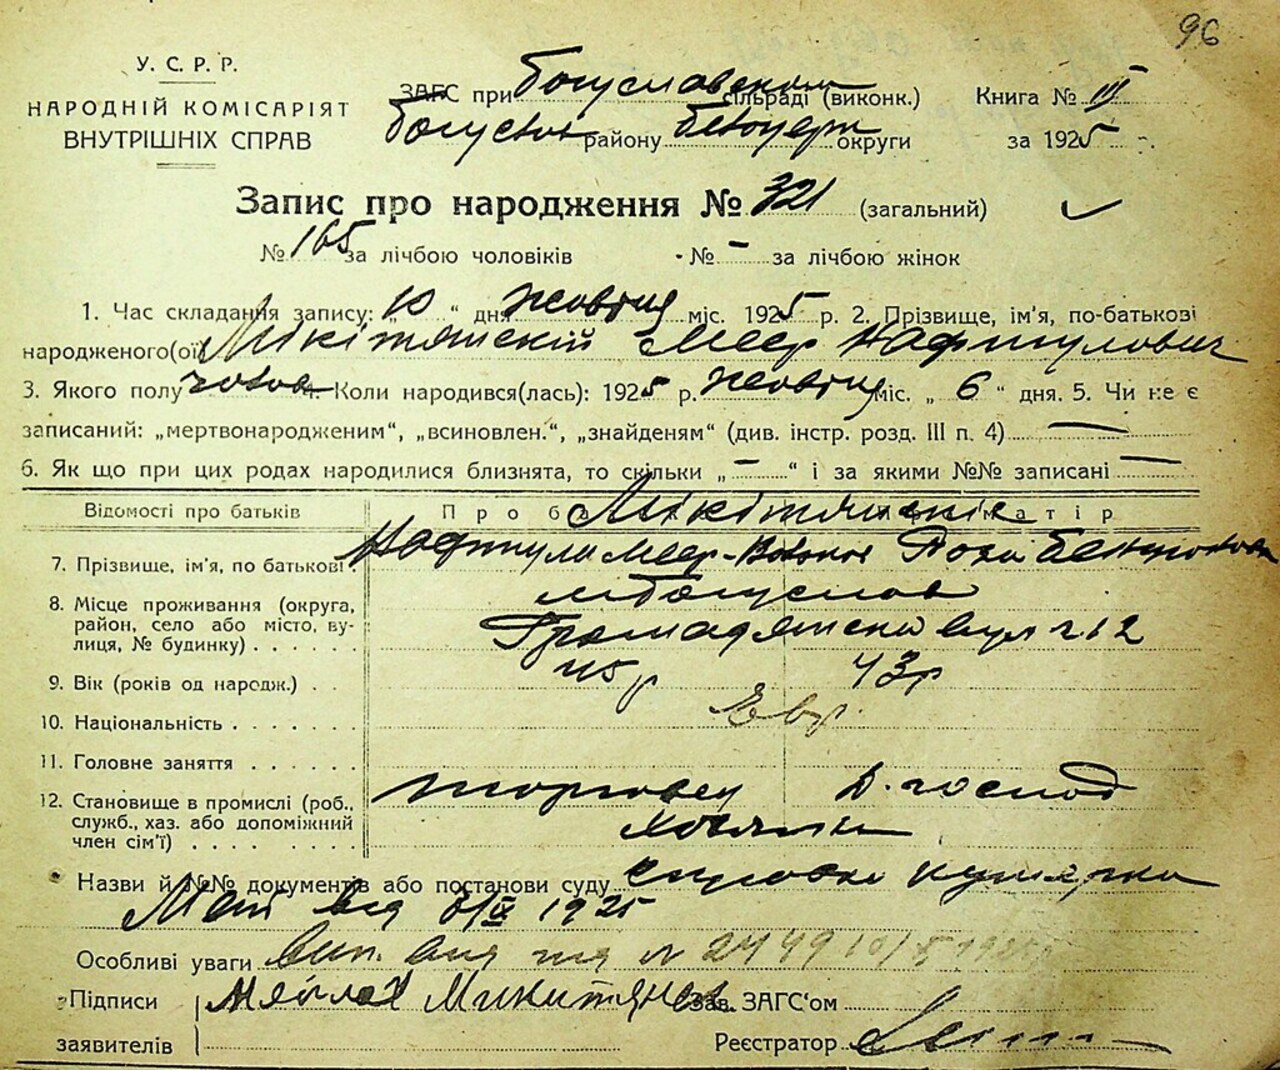 96
У. С. Р. Р.
НАРОДНІЙ КОМІСАРІЯТ
ВНУТРІШНІХ СПРАВ
ЗАГС при Богуславском сільраді (виконк.)
району округи
Книга № III
за 1925
Запис про народження № 321 (загальний)
№ 165 за лічбою чоловіків № — за лічбою жінок
1. Час складання запису: „10“ дня жовтня міс. 1925 р. 2. Прізвище, ім'я, по-батькові
народженого(ої) Мікітянскій Меер Нафтулович
3. Якого полу чолов 4. Коли народився(лась): 1925 р. жовтня міс. „ 6 “ дня. 5. Чи не є
записаний: „мертвонародженим“, „всиновлен.“, „знайденям“ (див. інстр. розд. III п. 4) —
6. Як що при цих родах народилися близнята, то скільки „ — “ і за якими №№ записані —
Відомості про батьків
Про матір
7. Прізвище, ім'я, по батькові
Нафтула Меер- Роза
8. Місце проживання (округа,
район, село або місто, ву-
лиця, № будинку) . . . . . .
м Богуслав
Громадянска вул 12
9. Вік (років од народж.) . .
45 р 43 р
10. Національність . . . . .
Евр.
11. Головне заняття . . . . . .
12. Становище в промислі (роб.,
служб., хаз. або допоміжний
член сім'ї) . . . . . . . .
торговец д. господ
Назви й №№ документів або постанови суду
від 1925
Особливі уваги вип. № 2449
Підписи
заявителів
Зав. ЗАГС'ом
Реєстратор